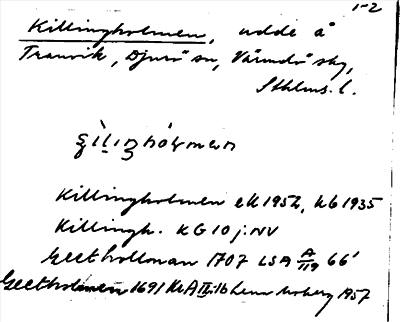 1-2
Killingholmen, udde å
Tranvik, Djurö sn, Värmdö sky,
Sthlms. l.
Killingholmen ek 1952, hb 1935
Killingh. KG 10 j. NV
Geetholman 1707 LSA A/119 66'
Geetholmen 1691 KrA Lennart Moberg 1957